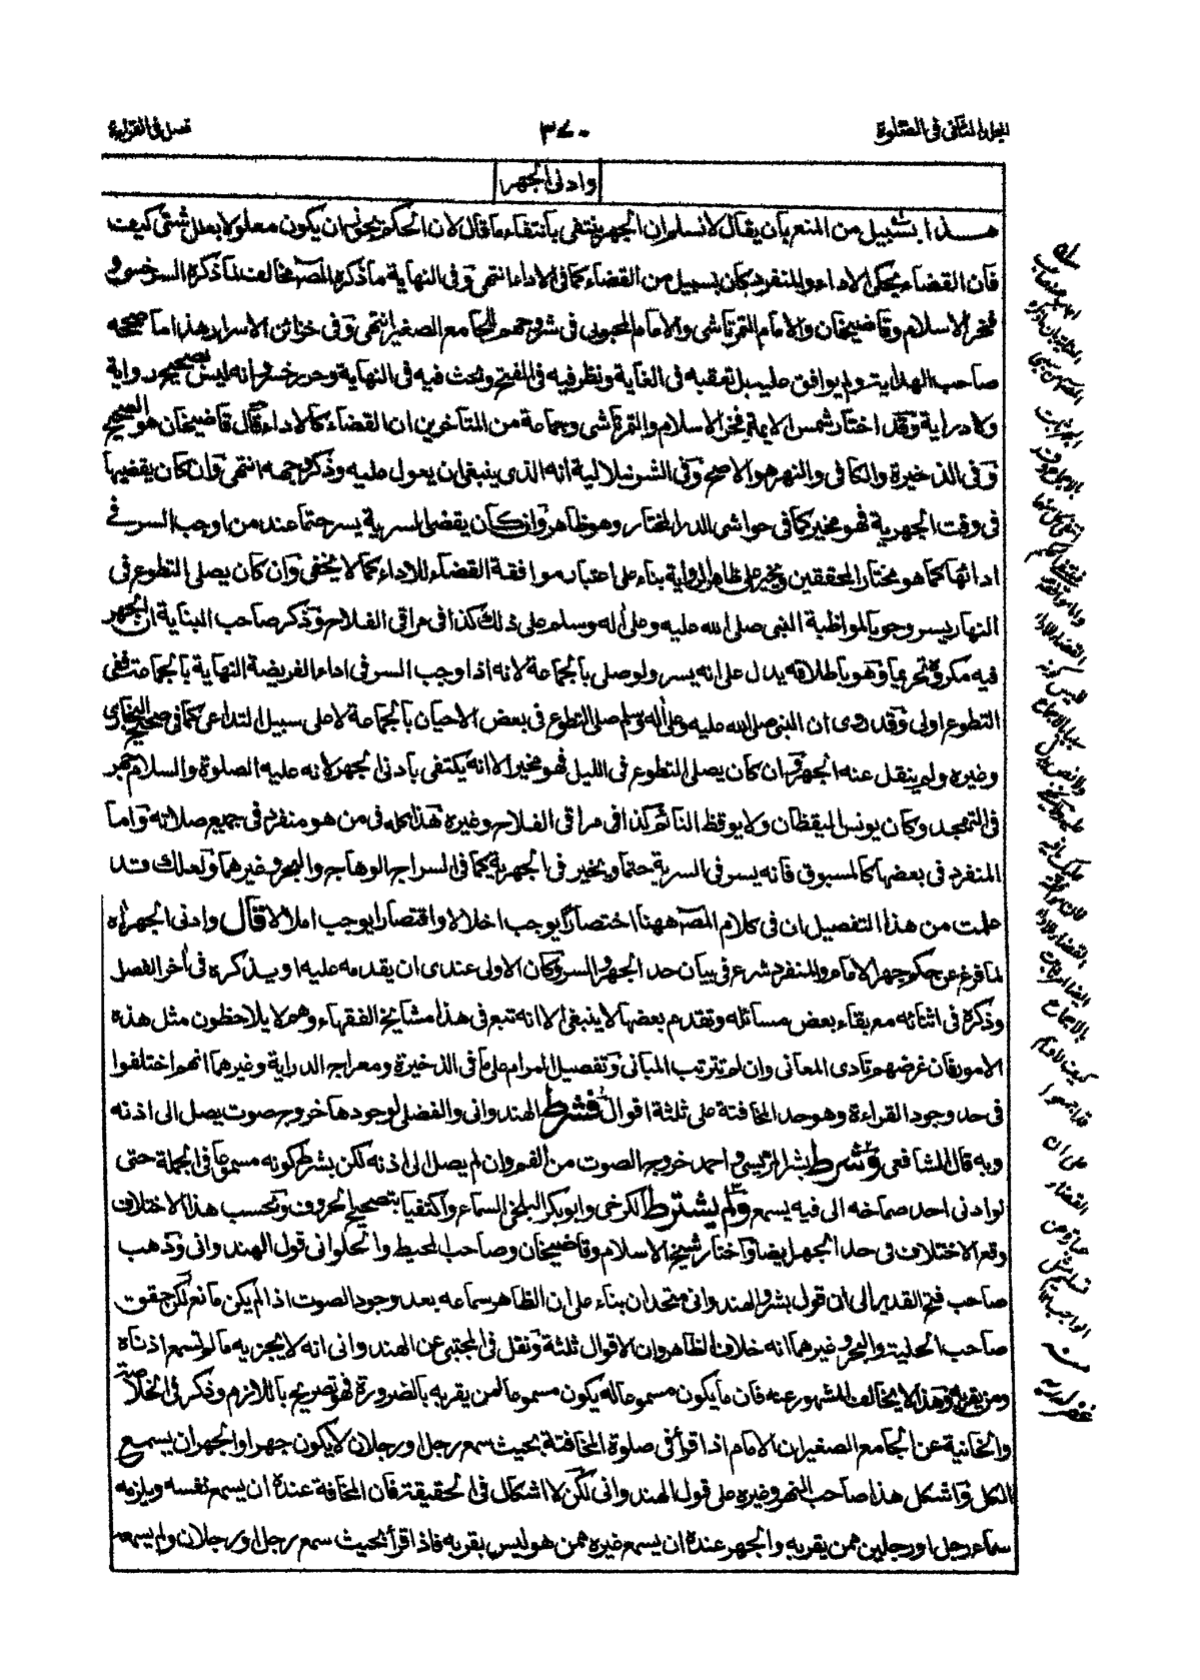 المجلد الثانى فى الصلوة
٣٧٠
فصل فى القراءة
وادنى الجهر
هذا بسبيل من المنع بان يقال لا نسلم ان الجهر ينتفى بانتفاء ما قال لان الحكم يجوز ان يكون معلولا بعلل شتى كيف
فان القضاء يحكى الاداء والمنفرد كان بسبيل من القضاء كما فى الاداء انتهى وفى النهاية ما ذكره المصـ مخالف لما ذكره السرخسى و
فخر الاسلام وقاضيخان والامام التمرتاشى والامام المحبوبى فى شروحهم للجامع الصغير انتهى وفى خزائن الاسرار هذا ما صححه
صاحب الهداية ولم يوافق عليه بل تعقبه فى الغاية ونظر فيه فى الفتح وبحث فيه فى النهاية وحرر خسرو انه ليس بصحيح رواية
ولا دراية وقد اختار شمس الايمة وفخر الاسلام والتمرتاشى وجماعة من المتأخرين ان القضاء كالاداء قال قاضيخان هو الصحيح
وفى الذخيرة والكافى والنهر هو الاصح وفى الشرنبلالية انه الذى ينبغى ان يعول عليه وذكر وجهه انتهى وان كان يقضيها
فى وقت الجهرية فهو مخير كما فى حواشى الدر المختار وهو ظاهر وان كان يقضى السرية يسر حتما عند من اوجب السر فے
ادائها كما هو مختار المحققين ويخير على ظاهر الرواية بناء على اعتبار موافقة القضاء للاداء كما لا يخفى وان كان يصلى التطوع فى
النهار يسر وجوبا لمواظبة النبى صلى الله عليه وعلى اله وسلم على ذلك كذا فى مراقى الفلاح وذكر صاحب البناية ان الجهر
فيه مكروه تحريما وهو باطلاقه يدل على انه يسر ولو صلى بالجماعة لانه اذا وجب السر فى اداء الفريضة النهاية بالجماعة ففى
التطوع اولى وقد روى ان النبى صلى الله عليه وعلى اله وسلم صلى التطوع فى بعض الاحيان بالجماعة لا على سبيل التداعى كما فى صحيح البخارى
وغيره ولم ينقل عنه الجهر وان كان يصلى التطوع فى الليل فهو مخير الا انه يكتفى بادنى الجهر لانه عليه الصلوة والسلام جهر
فى التهجد وكان يونس اليقظان ولا يوقظ النائم كذا فى مراقى الفلاح وغيره هذا كله فى من هو منفرد فى جميع صلاته واما
المنفرد فى بعضها كالمسبوق فانه يسر فى السرية حتما ويخير فى الجهرية كما فى السراج الوهاج والبحر وغيرهما ولعلك قد
علمت من هذا التفصيل ان فى كلام المصـ ههنا اختصارا يوجب اخلالا واقتصارا يوجب املالا قال وادنى الجهر اه
لما فرغ عن حكم جهر الامام والمنفرد شرع فى بيان حد الجهر والسر وكان الاولى عندى ان يقدمه عليه او يذكره فى آخر الفصل
وذكره فى اثنائه مع بقاء بعض مسائله وتقدم بعضها لا ينبغى الا انه تبع فى هذا مشايخ الفقهاء وهم لا يلاحظون مثل هذه
الامور فان غرضهم تادى المعانى وان لم تترتب المبانى وتفصيل المرام على ما فى الذخيرة ومعراج الدراية وغيرهما انهم اختلفوا
فى حد وجود القراءة وهو حد المخافتة على ثلثة اقوال فشرط الهندوانى والفضلى لوجودها خروج صوت يصل الى اذنه
وبه قال الشافعى وشرط بشر المريسى واحمد خروج الصوت من الفم وان لم يصل الى اذنه لكن بشرط كونه مسموعا فى الجملة حتى
لو ادنى احد صماخه الى فيه يسمع ولم يشترط الكرخى وابو بكر البلخى السماع واكتفيا بتصحيح الحروف وبحسب هذا الاختلاف
وقع الاختلاف فى حد الجهر ايضا واختار شيخ الاسلام وقاضيخان وصاحب المحيط والحلوانى قول الهندوانى وذهب
صاحب فتح القدير الى ان قول بشر والهندوانى متحدان بناء على ان الظاهر سماعه بعد وجود الصوت اذا لم يكن مانع لكن حقق
صاحب الحلية والبحر وغيرهما انه خلاف الظاهر وان الاقوال ثلثة ونقل فى المجتبى عن الهندوانى انه لا يجزيه ما لم تسمع اذناه
ومن بقربه وهذا لا يخالف المشهور عنه فان ما يكون مسموعا له يكون مسموعا لمن بقربه بالضرورة فهو تصريح باللازم وذكر فى الخلاصة
والخانية عن الجامع الصغير ان الامام اذا قرأ فى صلوة المخافتة بحيث سمع رجل او رجلان لا يكون جهرا والجهر ان يسمع
الكل واشكل هذا صاحب النهر وغيره على قول الهندوانى لكن لا اشكال فى الحقيقة فان المخافة عنده ان يسمع نفسه ويلزمه
سماع رجل او رجلين ممن بقربه والجهر عنده ان يسمع غيره ممن هو ليس بقربه فاذا قرأ بحيث سمع رجل او رجلان ولم يسمعه